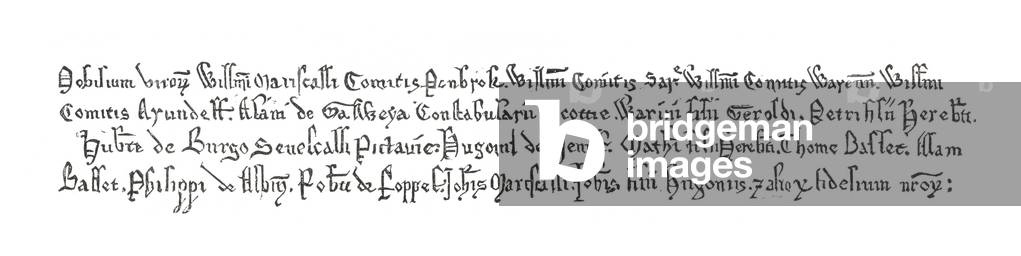 Nobilium viroꝝ Willmi Mariscalli Comitis Penbrok. Willmi Comitis Sar Willmi Comitis Waren. Willmi
Comitis Arundell. Alani de Galweya Constabularii Scottie. Warini filii Geroldi. Petri filii Hereberti.
Huberti de Burgo Senescalli Pictavie. Hugonis de Mathi filii Hereberti. Thome Basset. Alani
Basset. Philippi de Albiny. Roberti de Roppel. Johis Mariscalli. Johis filii Hugonis. fidelium nroꝝ:
b bridgeman
images